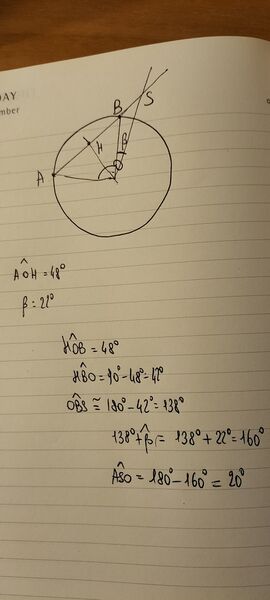 DAY
mber
B
S
H
β
A
O
AÔH = 48°
β = 22°
HÔB = 48°
HB̂O = 90° - 48° = 42°
OB̂S ≅ 180° - 42° = 138°
138° + β̂ = 138° + 22° = 160°
AŜO = 180° - 160° = 20°